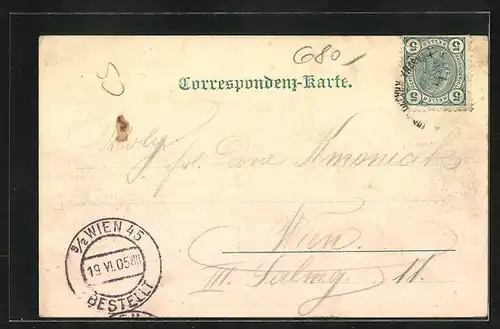 680
Correspondenz-Karte.
5 5
HELLER HELLER
5 5
Wolg.
frl. Dora Kmoniček
Wien
III. Salmg. 11.
3/2 WIEN 45
19 VI.05 VIII
BESTELLT